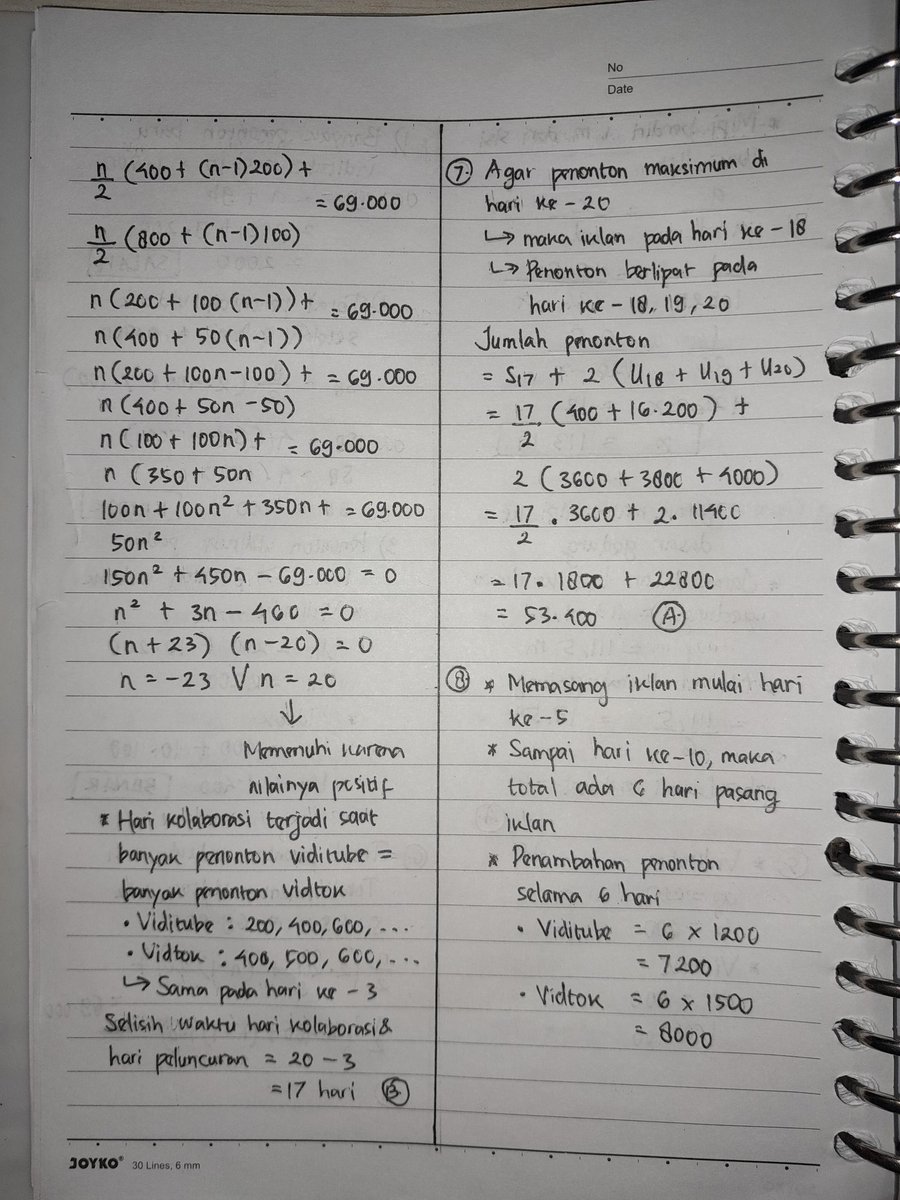 No
Date
n/2 (400 + (n-1)200) +
= 69.000
n/2 (800 + (n-1)100)
n(200 + 100 (n-1)) + = 69.000
n(400 + 50(n-1))
n(200 + 100n - 100) + = 69.000
n(400 + 50n - 50)
n(100 + 100n) + = 69.000
n (350 + 50n
100n + 100n² + 350n + = 69.000
50n²
150n² + 450n - 69.000 = 0
n² + 3n - 460 = 0
(n + 23) (n - 20) = 0
n = -23 V n = 20
↓
Memenuhi karena
nilainya positif
* Hari kolaborasi terjadi saat
banyak penonton viditube =
banyak penonton vidtok
• Viditube : 200, 400, 600, ...
• Vidtok : 400, 500, 600, ...
↳ Sama pada hari ke - 3
Selisih waktu hari kolaborasi &
hari peluncuran = 20 - 3
= 17 hari (B)
(7.) Agar penonton maksimum di
hari ke - 20
↳ maka iklan pada hari ke - 18
↳ Penonton berlipat pada
hari ke - 18, 19, 20
Jumlah penonton
= S17 + 2 (U18 + U19 + U20)
= 17/2 (400 + 16.200) +
2 (3600 + 3800 + 4000)
= 17/2 . 3600 + 2. 11400
= 17. 1800 + 22800
= 53.400 (A)
(8) * Memasang iklan mulai hari
ke - 5
* Sampai hari ke-10, maka
total ada 6 hari pasang
iklan
* Penambahan penonton
selama 6 hari
• Viditube = 6 x 1200
= 7200
• Vidtok = 6 x 1500
= 8000
JOYKO® 30 Lines, 6 mm